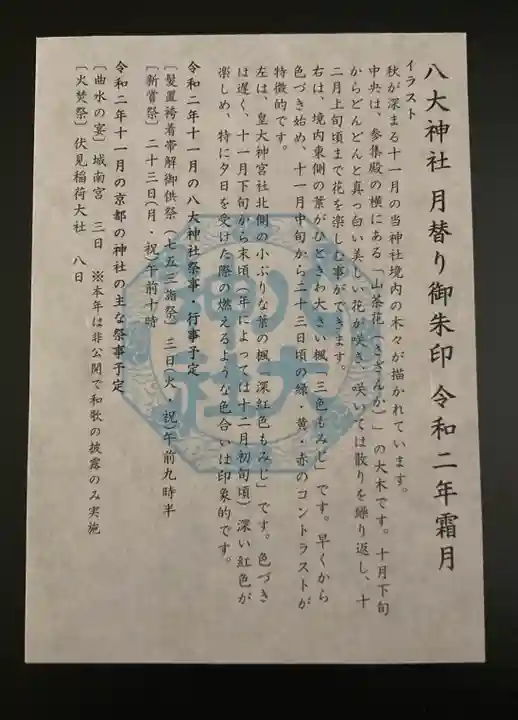 八大神社 月替り御朱印 令和二年霜月
イラスト
秋が深まる十一月の当神社境内の木々が描かれています。
中央は、参集殿の横にある「山茶花(さざんか)」の大木です。十月下旬
からどんどんと真っ白い美しい花が咲き、咲いては散りを繰り返し、十
二月上旬頃まで花を楽しむ事ができます。
右は、境内東側の葉がひときわ大きい楓「三色もみじ」です。早くから
色づき始め、十一月中旬から二十三日頃の緑・黄・赤のコントラストが
特徴的です。
左は、皇大神宮社北側の小ぶりな葉の楓「深紅色もみじ」です。色づき
は遅く、十一月下旬から末頃(年によっては十二月初旬頃)深い紅色が
楽しめ、特に夕日を受けた際の燃えるような色合いは印象的です。
令和二年十一月の八大神社祭事・行事予定
[髪置袴着帯解御供祭(七五三詣祭)]三日(火・祝)午前九時半
[新嘗祭]二十三日(月・祝)午前十時
令和二年十一月の京都の神社の主な祭事予定
[曲水の宴]城南宮 三日 ※本年は非公開で和歌の披露のみ実施
[火焚祭]伏見稲荷大社 八日